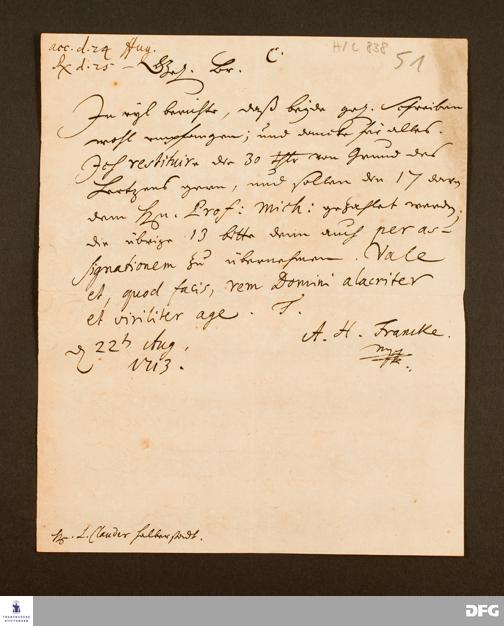 acc. d. 24 Aug.
Rx d. 25 –
H/C 838
51
C.
Gel. Br.
In eyl berichte, daß beyde gel. Schreiben
wohl empfangen; und dancke für alles.
Ich restituire die 30 Thlr von Grund des
Hertzens gern, und sollen die 17 davon
dem Hn. Prof: Mich: gezahlet werden;
die übrige 13 bitte denn auch per as-
signationem zu übernehmen. Vale
et, quod facis, rem Domini alacriter
et viriliter age. T.
A. H. Francke.
mpp
d. 22t Aug.
1713.
H. L. Clauder Halberstadt.
FRANCKESCHE
STIFTUNGEN
DFG